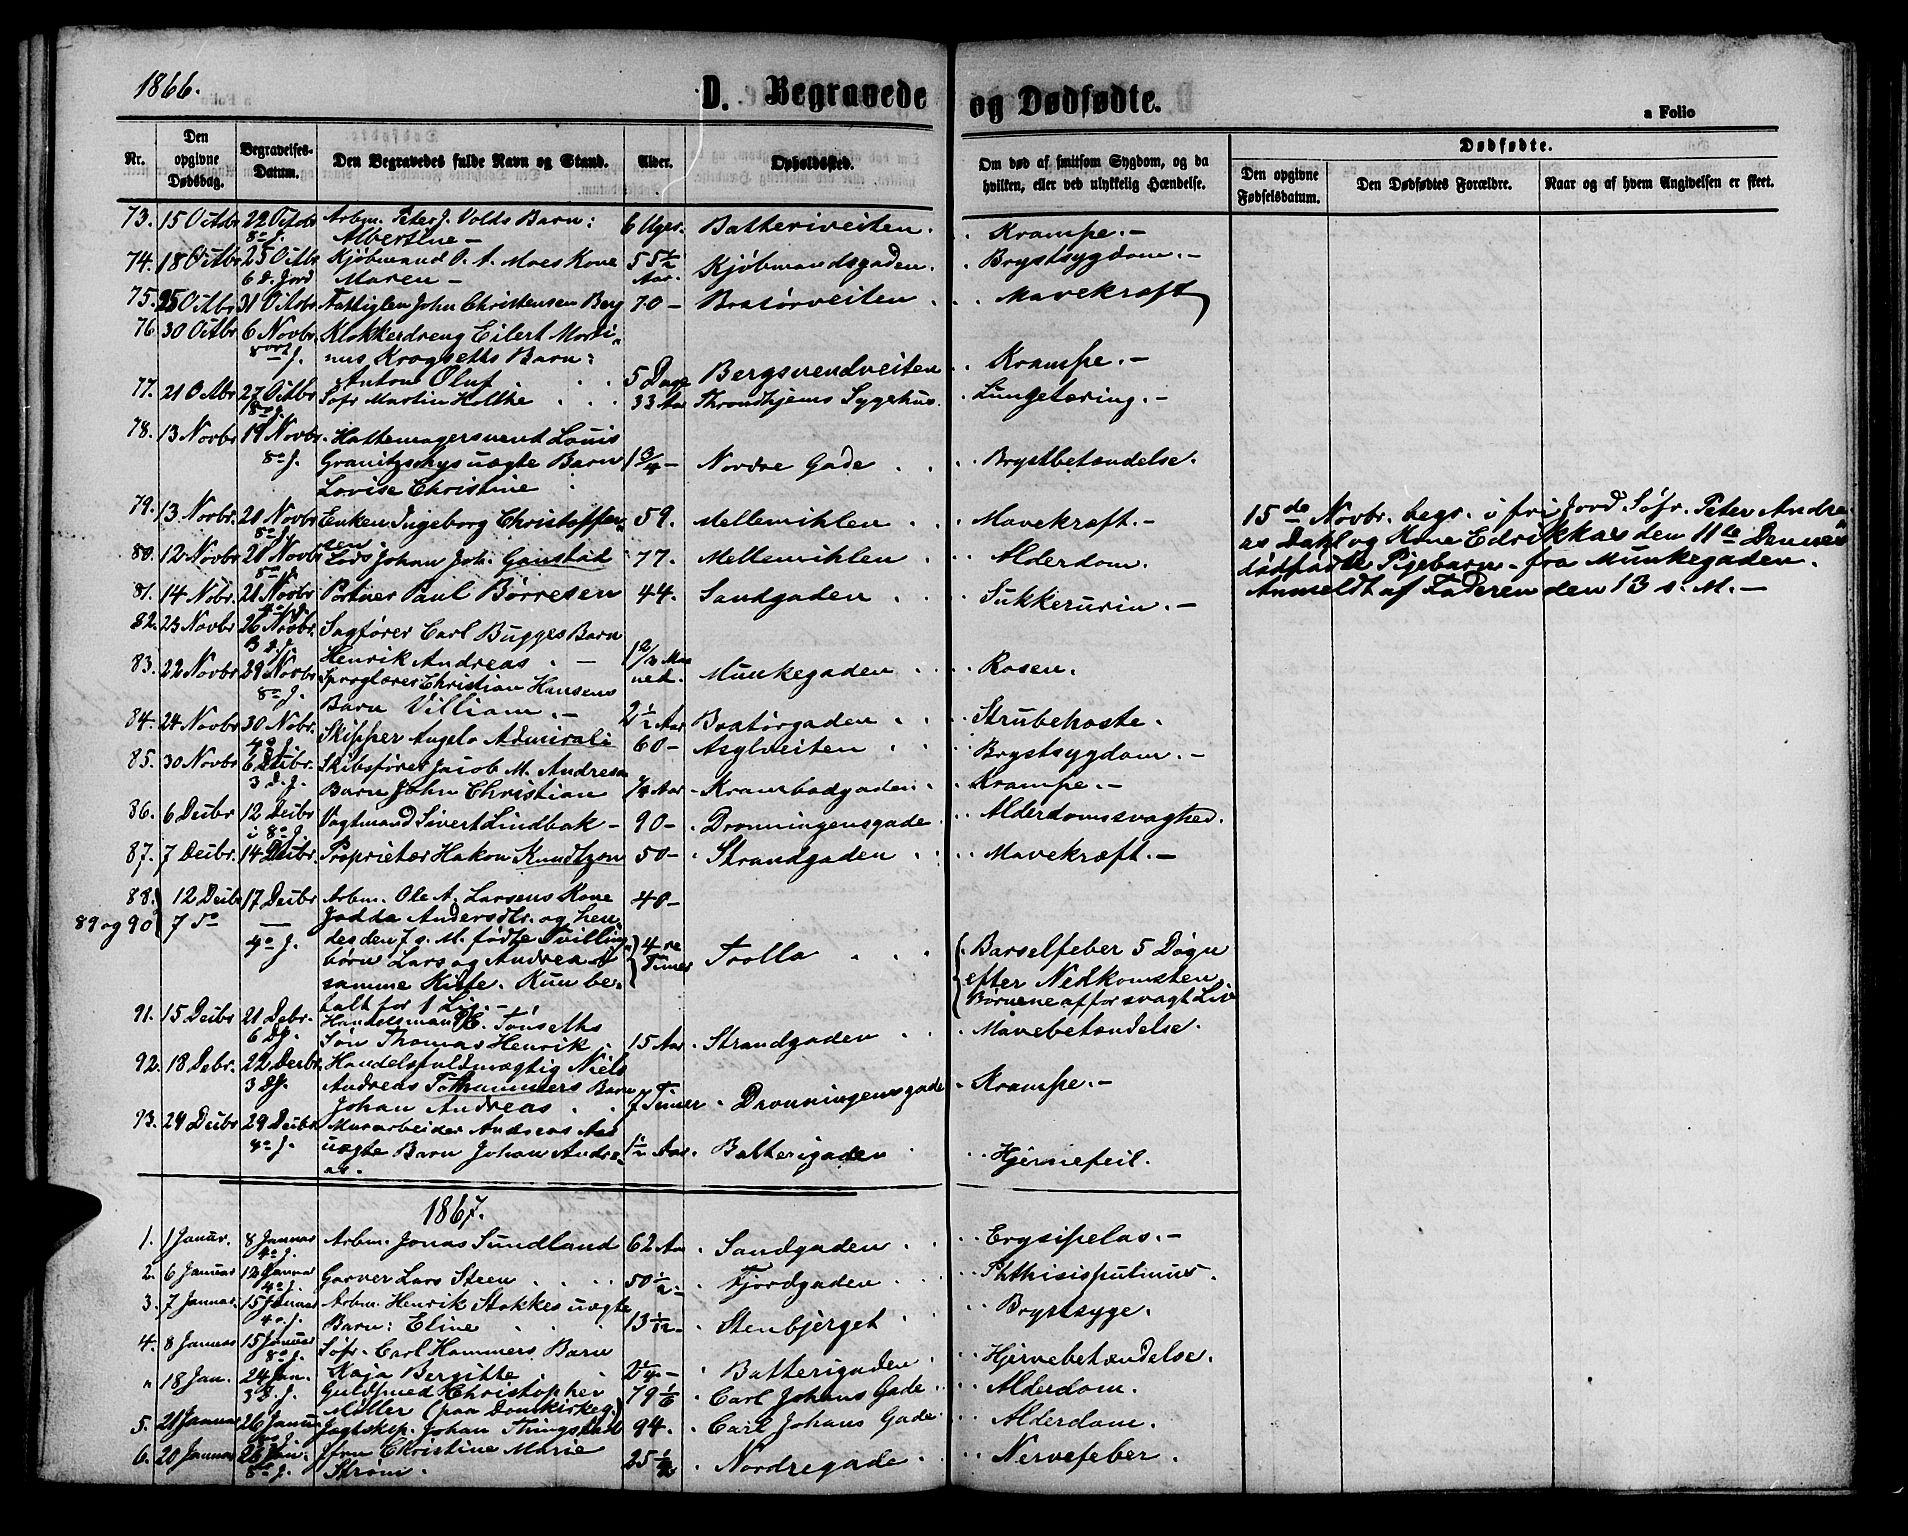 1866.
D. Begravede og Dødfødte.
a Folio
Nr.
Den opgivne Dødsdag.
Begravelses-Datum.
Den Begravedes fulde Navn og Stand.
Alder.
Opholdssted.
Om død af smitsom Sygdom, og da hvilken, eller ved ulykkelig Hændelse.
Dødfødte.
Den opgivne Fødselsdatum.
Den Dødfødtes Forældre.
Naar og af hvem Angivelsen er skeet.
73. 15 Octbr 22 Octbr Arbm. Peter J. Volds Barn: 6 Uger. Batteriveiten. Krampe.-
8° J. Albertine -
74. 18 Octbr 25 Octbr Kjøbmand O. A. Moes Kone 55 1/2 Kjøbmandsgaden. Brystsygdom.-
6 D. Jord Maren - Aar.
75. 25 Octbr 31 Octbr Fattiglem John Christensen Berg 70 - Bratørveiten. Mavekræft
76. 30 Octbr 6 Novbr. Klokkerdreng Eilert Marti-
J. nus Krogseths Barn:
Anton Oluf 5 Dage Bergsvendveiten Krampe.-
77. 21 Octbr 27 Octbr Søfr Martin Holthe 33 Aar Throndhjems Sygehus. Lungetæring.-
8° J.
78. 13 Novbr 19 Novbr. Hattemagersvend Louis
8° J. Granitzschys uægte Barn 1 3/4 - Nordre Gade Brystbetændelse.
Lovise Christine
79. 13 Novbr. 20 Novbr Enken Ingeborg Christoffer- 59. Mellemihlen Mavekræft.-
8° J. sen.
80. 12 Novbr 20 Novbr Lods Johan Joh. Ganstad 77. Mellemihlen Alderdom.
8° J.
81. 14 Nobr. 21 Novbr Portner Paul Børresen 44. Sandgaden Sukkerurin.-
15de Novbr. begr. i fri Jord Søfr. Peter Andre-
as Dahl og Kone Edrikkas den 11te Dennes
dødfødte Pigebarn - fra Munkegaden.
Anmeldt af Faderen den 13 s. M.-
82. 23 Novbr 26 Novbr. Sagfører Carl Bugges Barn
Henrik Andreas. - 1 2/3 Maaned. Munkegaden Rosen.
83. 22 Novbr 29 Novbr Sproglærer Christian Hansens
8° J. Barn Villiam.- 2 1/2 Aar Bratørgaden Strubehoste.
84. 24 Novbr 30 Nobr. Skipper Angelo Admirali 60 - Asylveiten Brystsygdom.-
4° J.
85. 30 Novbr 6 Decbr. Skibsfører Jacob M. Andresen
3 D. J. Barn John Christian 1/4 Aar Krambodgaden Krampe.-
86. 6 Decbr 12 Decbr Vagtmand Sivert Lindbak - 90 - Dronningensgade Alderdomssvaghed.
8° J.
87. 7 Decbr. 14 Decbr. Proprietær Hakon Knudtzon 50 - Strandgaden Mavekræft.-
88. 12 Decbr 17 Decbr Arbm. Ole A. Larsens Kone 40 -
89 og 90 7 d° Jodda Andersdtr. og hen-
4° J. des den 7 s. M. fødte Tvilling-
børn Lars og Andrea i 4re Timer Trolla Barselfeber 5 Døgn
samme Kiste. Kun be- efter Nedkomsten
talt for 1 Lig.- Børnene af for svagt Liv
91. 15 Decbr 21 Debr. Handelsmand E. Tønseths
6 DJ. Søn Thomas Henrik. 15 Aar Strandgaden Mavebetændelse.
92. 18 Debr. 22 Decbr Handelsfuldmægtig Niels
3 DJ. Andreas Folhammers Barn
Johan Andreas 7 Timer Dronningensgade Krampe.-
93. 24 Decbr 29 Decbr Murarbeider Andreas Aas
4° J. uægte Barn Johan Andre- 1/2 Aar. Batterigaden Hjernefeil.
as.
1867.
1. 1 Januar. 8 Januar Arbm. Jonas Sundland 62 Aar Sandgaden Erysipelas.-
4° J.
2. 6 Januar 12 Januar Garver Lars Steen 50 1/2 - Fjordgaden Phthisis pulmus.
4° J.
3. 7 Januar. 15 Januar Arbm. Henrik Stokkes uægte
4° J. Barn: Eline 13 1/12 - Stenbjerget Brystsyge.
4. 8 Januar 15 Januar Søfr. Carl Hammers Barn
8° J. Kaja Bergitte 2 1/4 - Batterigaden Hjernebetændelse.
" 18 Jan. 24 Jan. Guldsmed H Christopher 79 1/2 Carl Johans Gade Alderdom.
3 D. J. Møller (paa Domkirkeg.)
5. 21 Januar 26 Januar Jagtskip. Johan Thingstad 94. Carl Johans Gade Alderdom.
6. 20 Januar 26 Jan. Jfru Christine Marie 25 1/2 Nordregade Nervefeber.
8° J. Strøm.